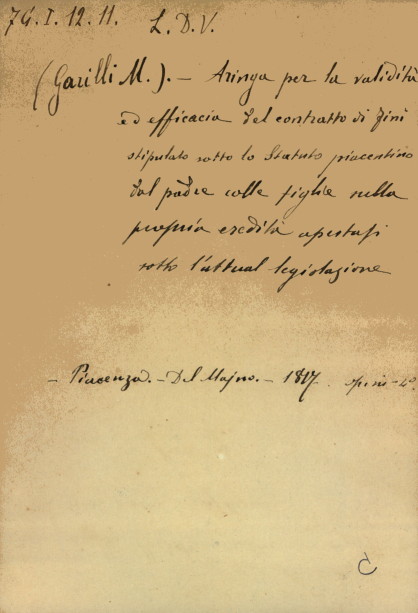 74.I.12.11.
L. D. V.
(Garilli M.). - Aringa per la validità
ed efficacia del contratto di fini
stipulato sotto lo Statuto piacentino
dal padre colle figlie sulla
propria eredità apertasi
sotto l'attual legislazione
- Piacenza. - Del Majno. - 1817. in-4°.
C